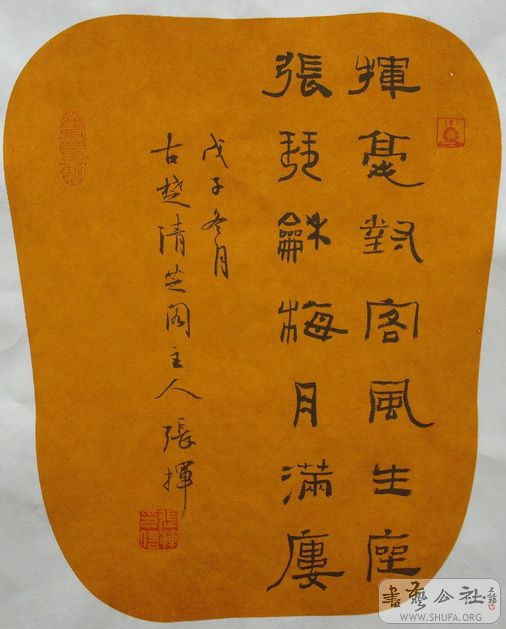 揮毫對客風生座
張琴龢梅月滿廔
戊子冬月
古楚清芝閣主人張揮
張揮之信
書藝公社
WWW.SHUFA.ORG